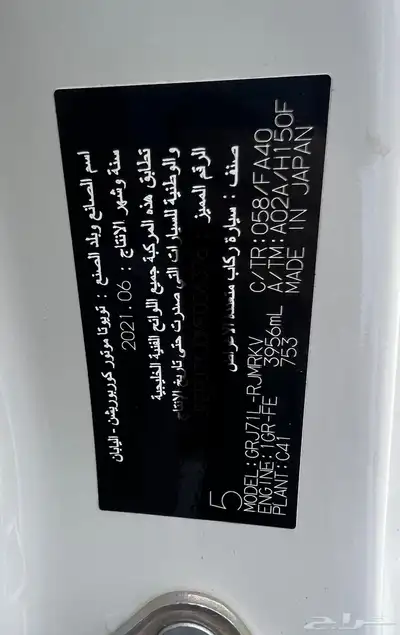 اسم الصانع وبلد الصنع : تويوتا موتور كوربوريشن - اليابان
سنة وشهر الانتاج : 2021.06
تطابق هذه المركبة جميع اللوائح الفنية الخليجية
والوطنية للسيارات التي صدرت حتى تاريخ الإنتاج
الرقم المميز :
صنف : سيارة ركاب متعددة الاغراض
5
MODEL:GRJ71L-RJMRKV C/TR:058/FA40
ENGINE:1GR-FE 3956mL A/TM:A02A/H150F
PLANT:C41 753 MADE IN JAPAN
حراج